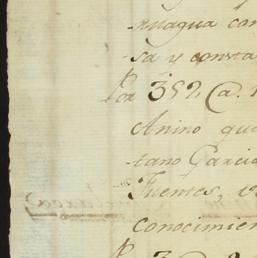 -nuagua con
-sa y consta
Por 352 @. 
Anino que
-tano Garcia
Fuentes, v
conocimien